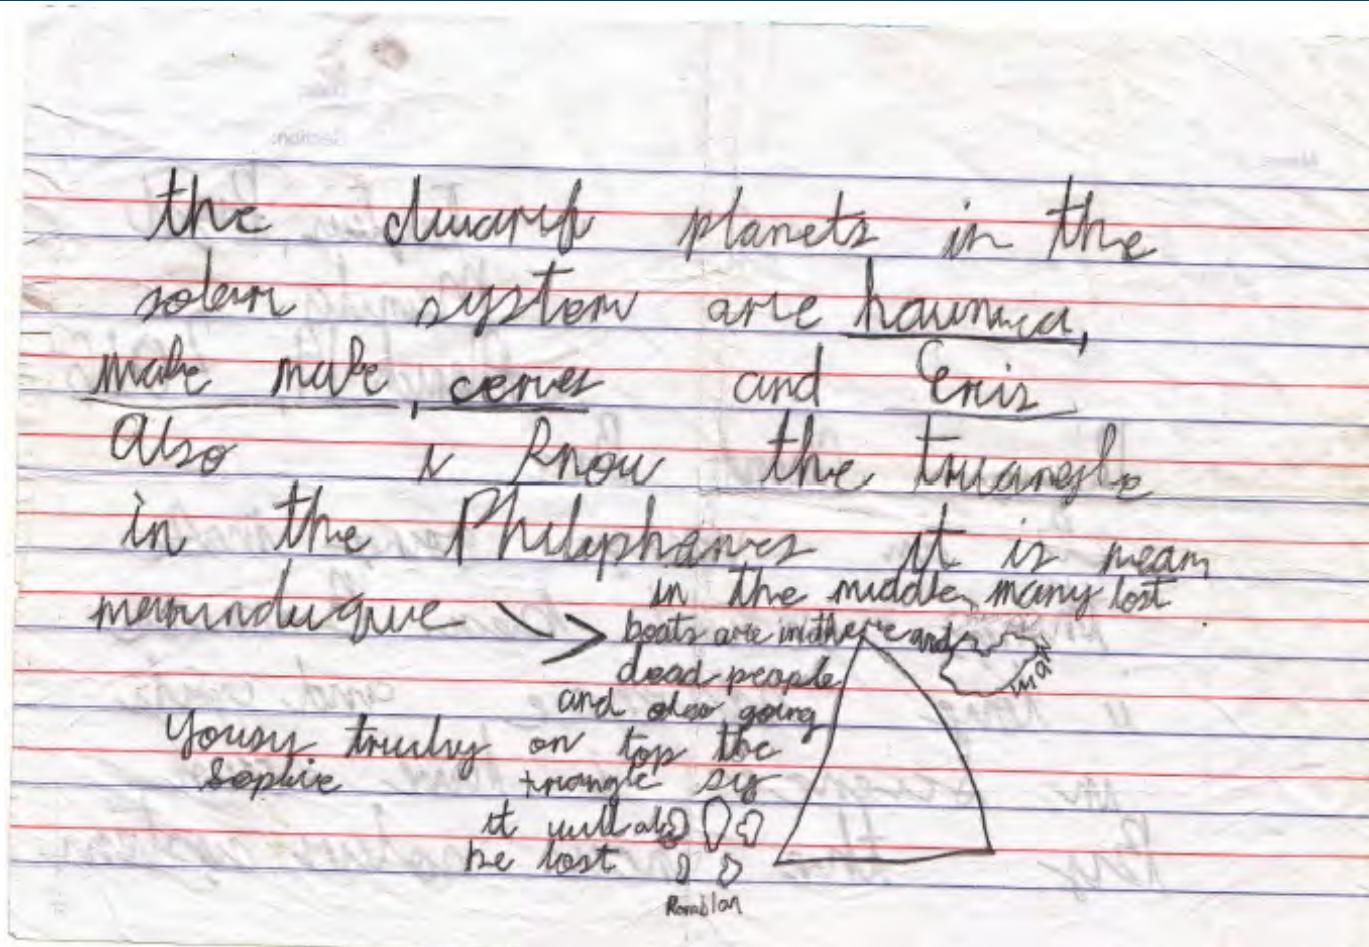 the dwarf planets in the
solar system are haumea,
make make, ceres and Eris
Also I know the triangle
in the Philephines it is near
marinduque
in the middle, many lost
boats are in there and
dead people
and also going
on top the
triangle
it will also
be lost
Yousy truely
Sophie
Romblon